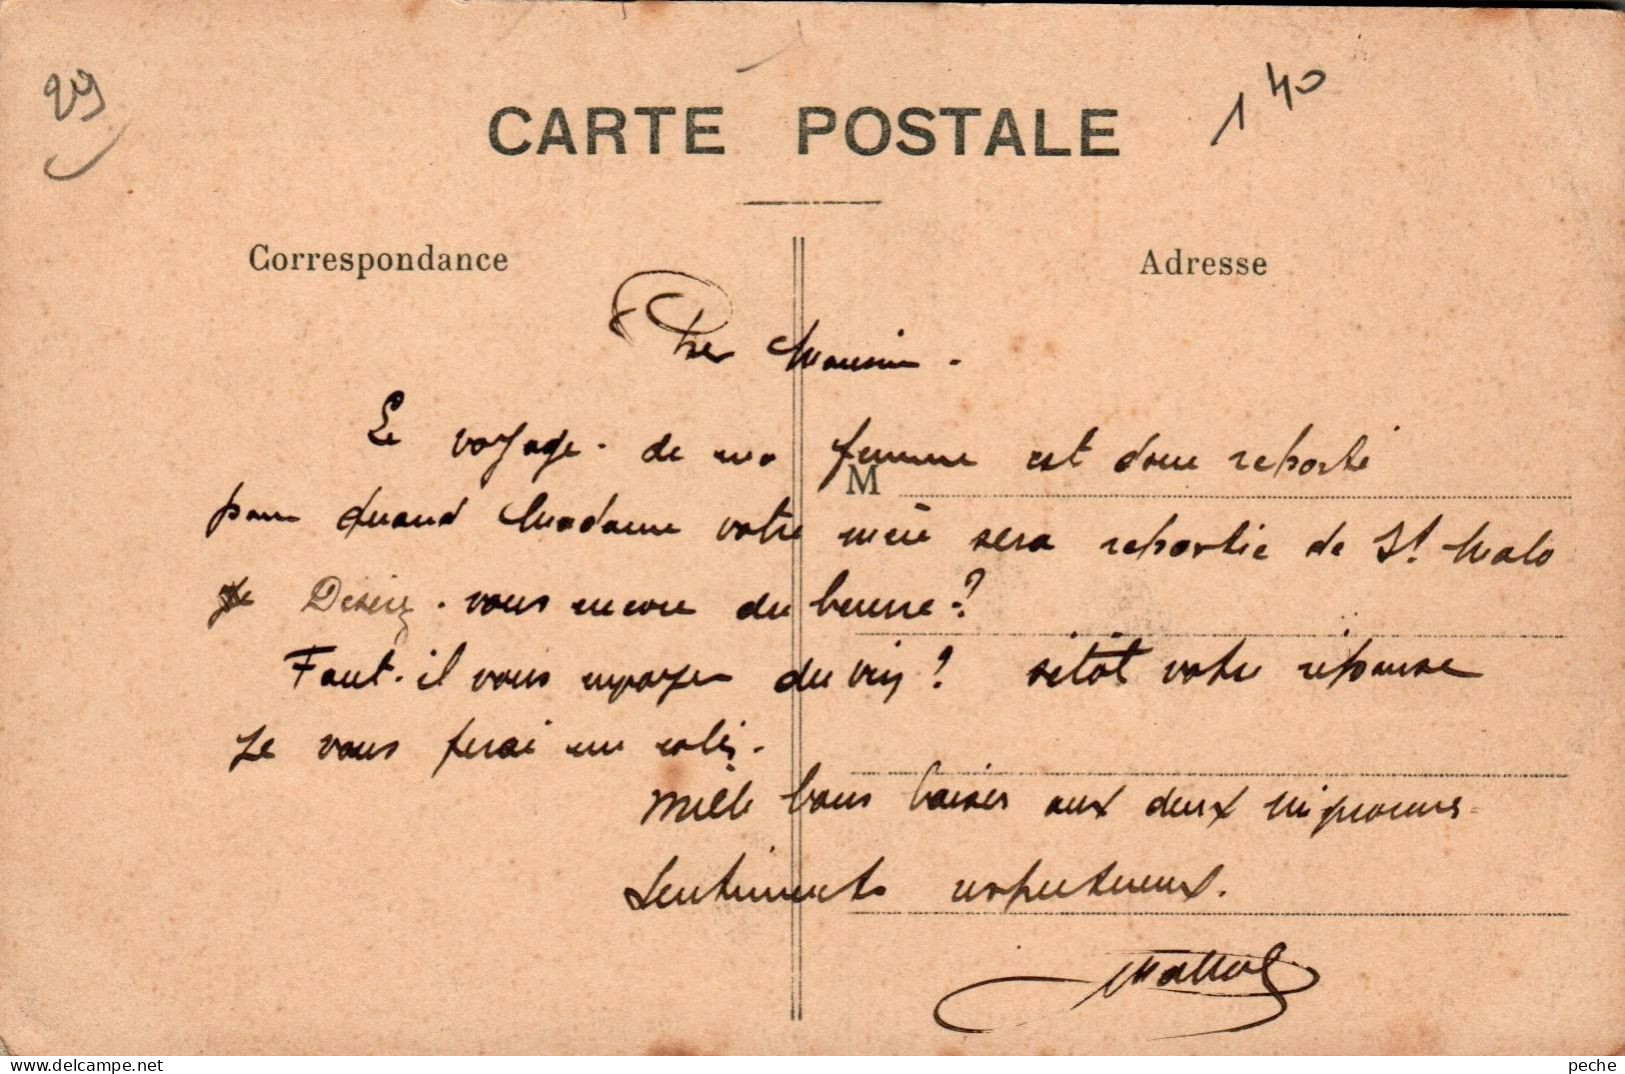 29
1 40
CARTE POSTALE
Correspondance
Adresse
Cher Monsieur.
Le voyage. de ma femme est donc reporté
M
pour quand Madame votre mère sera repartie de St Malo
Je Desirez. vous encore du beurre?
Faut. il vous envoyer du vin? sitôt votre réponse
Je vous ferai un colis.
Mille bons baisers aux deux mignonnes
Sentiments respectueux.
peche